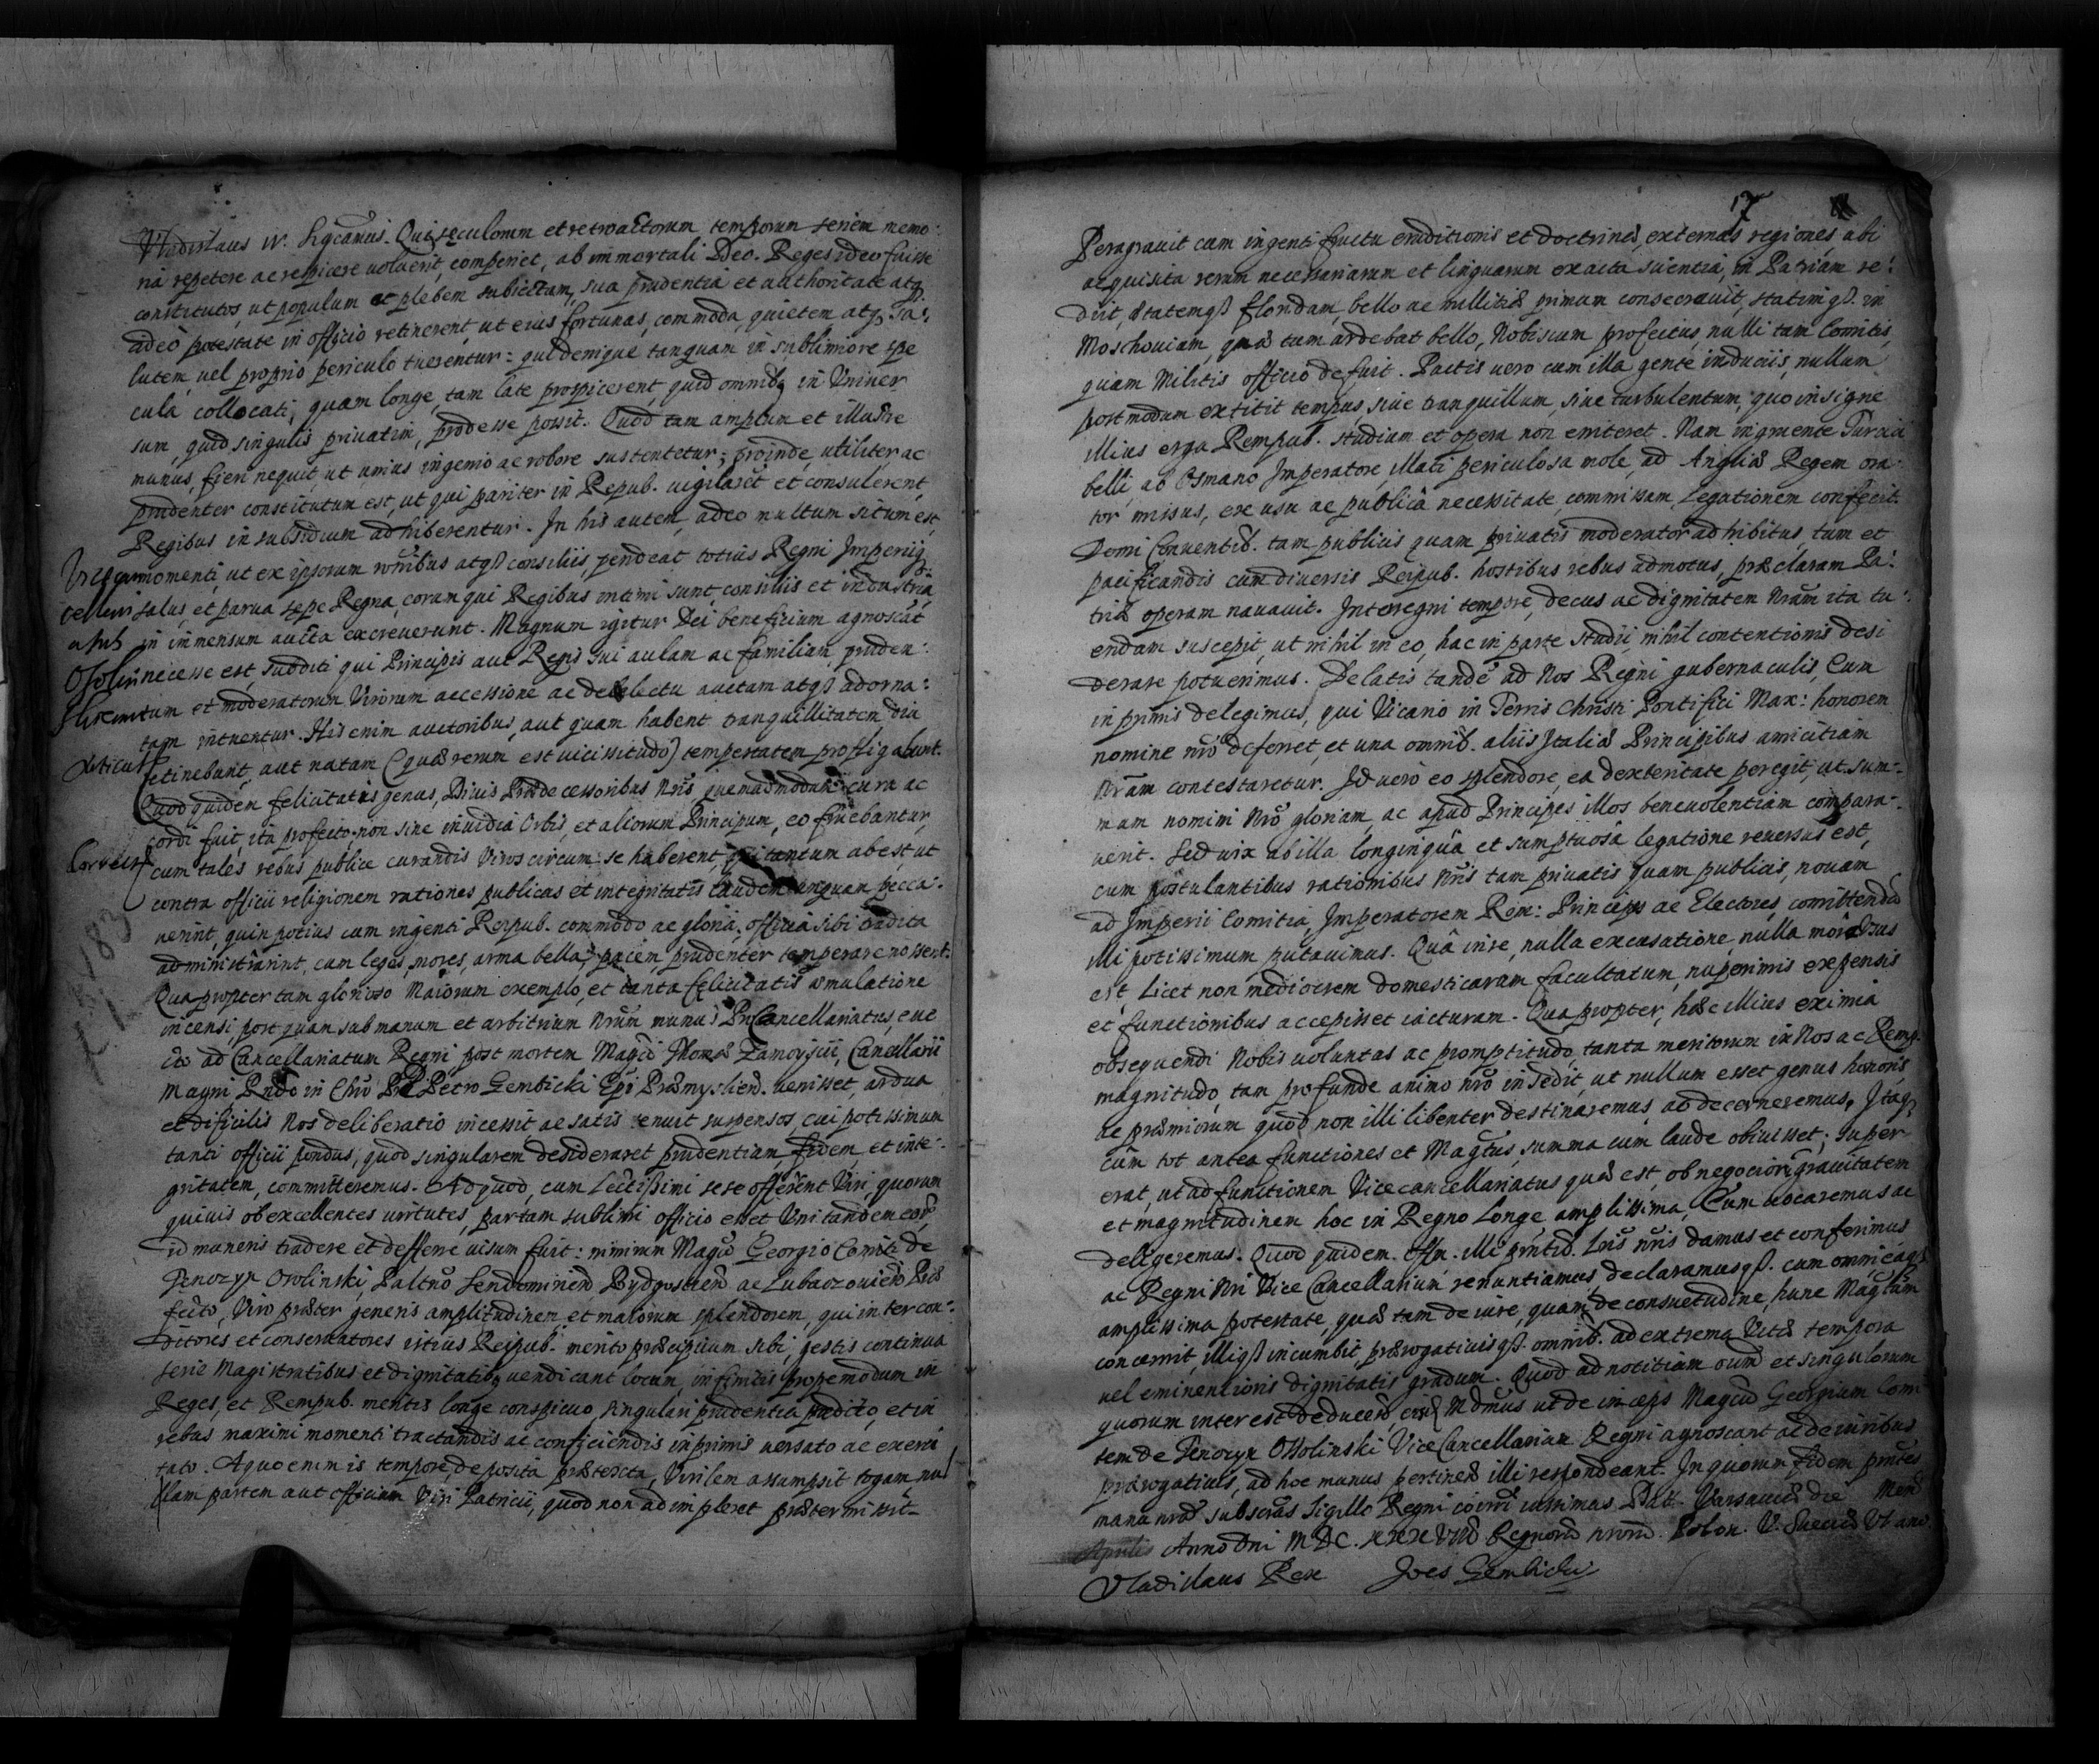 Vladislaus IV. Sigcamus. Qui seculorum et retroactorum temporum seriem memo-
ria repetere ac respicere voluerit, comperiet, ab immortali Deo. Reges ideo fuisse
constitutos, ut populum et plebem subiectam, sua prudentia et authoritate atq
adeo potestate in officio retinerent, ut eius fortunas, commoda, quietem atq Sa-
lutem, uel proprio periculo tuerentur: qui denique tanquam in sublimiore spe
cula collocati, quam longe, tam late prospicerent, quid omnibq in Vniuer
sum, quid singulis priuatim, prodesse possit. Quod tam amplum et illustre
munus, fieri nequit, ut unius ingenio ac robore sustentetur; proinde, utiliter ac
prudenter constitutum est, ut qui pariter in Repub. uigilaret et consulerent
Regibus in subsidium adhiberentur. In his autem, adeo multum situm est
momenti, ut ex ipsorum moribus atqs consiliis, pendeat totius Regni Imperiiq
salus, et parua sepe Regna, eorum qui Regibus intimi sunt, consiliis et industria
in immensum aucta excreuerunt. Magnum igitur Dei beneficium agnoscat
Osolin necesse est, subditi qui Principis aut Regis sui aulam ac familiam pruden-
tum et moderatorum Virorum accessione ac delectu auctam atqs adorna-
tam intuentur. His enim auctoribus, aut quam habent tranquillitatem diu
retinebunt, aut natam (quæ rerum est uicissitudo) tempestatem profligabunt.
Quod quidem felicitatis genus, Diuis Prædecessoribus Nris quemadmodum curæ ac
cordi fuit, ita profecto non sine inuidia Orbis, et aliorum Principum, eo fruebantur,
Correcis cum tales rebus publice curandis Viros circum se haberent, qui tantum abest, ut
contra officii religionem rationes publicas et integritatis laudem unquam pecca-
uerint, quin potius cum ingenti Reipub. commodo ac gloria, officia sibi credita
administrarint, cum leges, mores, arma bella, pacem, prudenter temperare nossent.
Quapropter tam glorioso Maiorum exemplo, et tanta felicitatis æmulatione
incensi, postquam sub manum et arbitrium Nrum munus ProCancellariatus, eue
cto ad Cancellariatum Regni post mortem Magci Thomæ Zamoyscii, Cancellarii
Magni Rndo in Chro Pre Petro Gembicki Epo Præmyslien. uenisset, ardua
et dificilis Nos deliberatio incessit ac satis tenuit suspensos, cui potissimum
tanti officii pondus, quod singularem desideraret prudentiam, fidem, et inte-
gritatem, committeremus. Ad quod, cum Lectissimi sese offerent Viri, quorum
quiuis ob excellentes uirtutes, par tam sublimi officio esset Vni tandem eor
id muneris tradere et defferre uisum fuit: nimirum Magco Georgio Comiti de
Tenczyn Osolinski, Paltno Sendomirien Bydgostien ac Lubaczouien Præ
fecto, Viro præter generis amplitudinem, et maiorum splendorem, qui inter con-
ditores et conseruatores istius Reipub. merito præcipuum sibi, gestis continua
serie Magistratibus et dignitatibq uendicant locum, infinitis propemodum in
Reges, et Rempub. meritis longe conspicuo, singulari prudentia prædito, et in
rebus maximi momenti tractandis ac conficiendis inprimis uersato ac exerci
tato. A quo enim is tempore, deposita prætexta, Virilem assumpsit togam nul
llam partem aut officium Viri Patricii, quod non adimpleret prætermisit.
17
Peragrauit cum ingenti fructu eruditionis et doctrinæ, externas regiones, ubi
acquisita rerum necessariarum et linguarum exacta scientia, in Patriam re-
diit, ætatemqs floridam, bello ac militiæ primum consecrauit, statimqs. in
Moschouiam, quæ tum ardebat bello, Nobiscum profectus, nulli tam Comitis,
quam Militis officio defuit. Pactis uero cum illa gente induciis, nullum
postmodum extitit tempus, siue tranquillum, siue turbulentum, quo insigne
illius erga Rempub. studium et opera non eniteret. Nam ingruente Turcici
belli, ab Osmano Imperatore, illati periculosa mole, ad Angliæ Regem ora-
tor missus, ex usu ac publica necessitate, commissam, Legationem confecit.
Domi Conuentib. tam publicis quam priuatis moderator adhibitus, tum et
pacificandis cum diuersis Reipub. hostibus rebus admotus, præclaram Pa-
triæ operam nauauit. Interregni tempore, decus ac dignitatem Nram ita tu-
endam suscepit, ut nihil in eo, hac in parte studii, nihil contentionis desi
derare potuerimus. Delatis tandē ad Nos Regni gubernaculis, Eum
inprimis delegimus, qui Vicario in Terris Christi Pontifici Max: honorem
nomine nro deferret, et una omnib. aliis Italiæ Principibus amicitiam
Nram contestaretur. Id uero eo splendore, ea dexteritate peregit, ut sum-
mam nomini Nro gloriam, ac apud Principes illos beneuolentiam compara-
uerit. Sed uix ab illa longinqua et sumptuosa legatione reuersus est,
cum postulantibus rationibus Nris tam priuatis quam publicis, nouam
ad Imperii Comitia, Imperatorem Rom: Principes ac Electores, comittendā
illi potissimum putauimus. Qua in re, nulla excusatione, nulla mora Vsus
est, Licet non mediocrem domesticarum facultatum, nuperrimis expensis
et functionibus accepisset iacturam. Quapropter, hæc illius eximia
obsequendi Nobis uoluntas ac promptitudo, tanta meritorum in Nos ac Remp.
magnitudo, tam profunde animo nro insedit, ut nullum esset genus honoris
ac præmiorum quod non illi libenter destinaremus, ac decerneremus. Itaqs
cum tot antea functiones et Magtus, summa cum laude obiuisset; super-
erat, ut ad functionem Vicecancellariatus quæ est, ob negociorū grauitatem
et magnitudinem hoc in Regno longe amplissima, Eum uocaremus ac
deligeremus. Quod quidem offm. illi pntib. Lris Nris damus et conferimus
ac Regni Nri Vice Cancellarium renuntiamus, declaramusqs. cum omni eaqs
amplissima potestate, quæ tam de iure, quam de consuetudine, hunc Magtum
concernit, illiqs incumbit, prærogatiuisqs. omnib. ad extrema Vitæ tempora
uel eminentioris dignitatis gradum. Quod ad notitiam oium et singulorum
quorum interest deducen, Mdmus ut deinceps Magcum Georgium Comi
tem de Tenczyn Ossolinski ViceCancellarium Regni agnoscant ac de iuribus
prærogatiuis, ad hoc munus pertinen illi respondeant. In quorum fidem pntes
manu nra subscras Sigillo Regni coīri iussimus Dat. Varsauiæ die Men
Aprilis Anno Dni MDC. XXXVIII Regnorū nrorū. Polon. V. Sueciæ VI anno
Vladislaus Rex Joes Gembicki